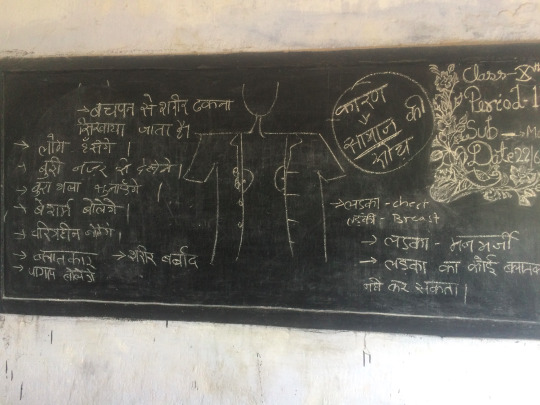 → बचपन से शरीर ढकना
सिखाया जाता है।
→ लोग हँसेगे।
→ बुरी नजर से देखेगे।
→ बुरा भला
→ बेशर्म बोलेगे।
→ चरित्रहीन बोलेगे।
→ बलात्कार → शरीर बर्बाद
→ पागल बोलेगे
कारण
समाज की
सोच
→ लड़का - chest
लड़की - Breast
→ लड़का - मन मर्जी
→ लड़का का कोई
नही कर सकता।
Class-Xth
Period-1
Sub
Date 22/6